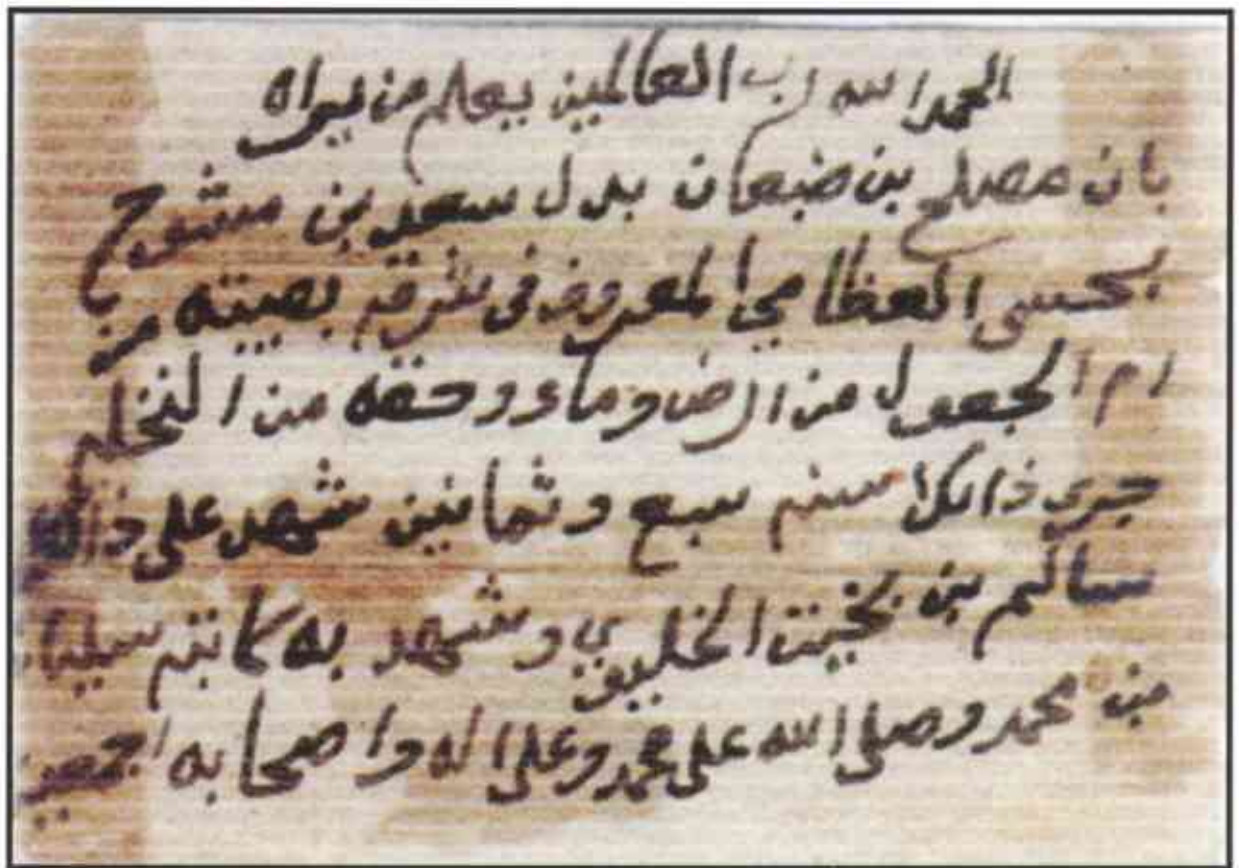 الحمد الله رب العالمين يعلم من يراه
بان مصلح بن ضبعان بدل سعد بن مشوح
بحسي العظامي المعروف في شرقه بصيته من
ام الجعول من ارض وماء وحقه من النخله
جرى ذالك سنه سبع وثمانين شهد على ذالك
سالم بن بخيت الخليوي وشهد به كاتبه سليمان
بن محمد وصلى الله على محمد وعلى اله واصحابه اجمعين